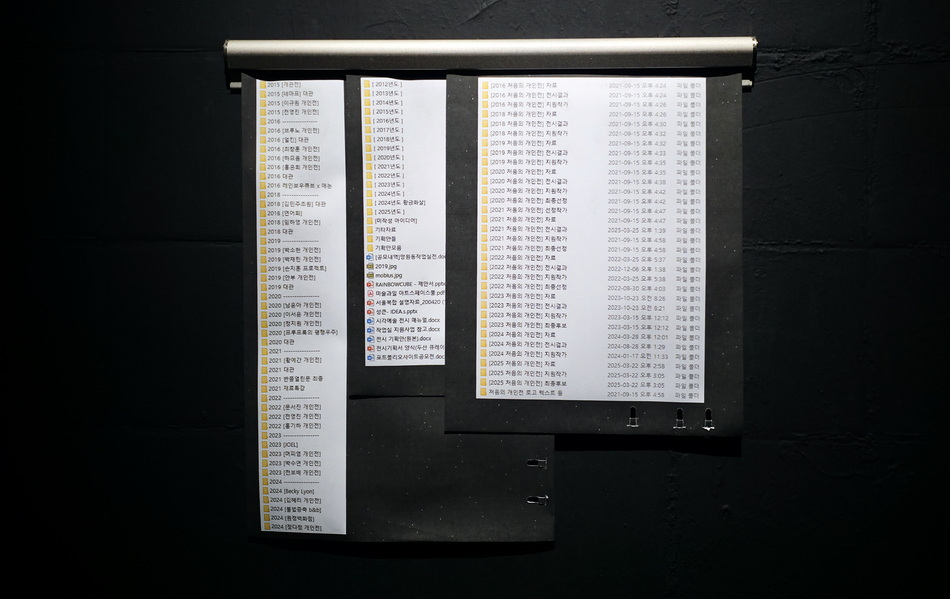 2015 [개관전]
2015 [테마프] 대관
2015 [이규원 개인전]
2015 [전영진 개인전]
2016 ----------------
2016 [브루노 개인전]
2016 [멀킨] 대관
2016 [최창훈 개인전]
2016 [하피용 개인전]
2016 [홍은희 개인전]
2016 대관
2016 레인보우큐브 x 매논
2018 ----------------
2018 [김민주초원] 대관
2018 [연어회]
2018 [임하영 개인전]
2018 대관
2019 ----------------
2019 [박소현 개인전]
2019 [박재진 개인전]
2019 [손지훈 프로젝트]
2019 [안부 개인전]
2019 대관
2020 ----------------
2020 [남윤아 개인전]
2020 [이서윤 개인전]
2020 [정지원 개인전]
2020 [프루프록의 평행우주]
2020 대관
2021 ----------------
2021 [황예간 개인전]
2021 대관
2021 반쯤열린문 최종
2021 재료특강
2022 ----------------
2022 [문서진 개인전]
2022 [전영진 개인전]
2022 [홍기하 개인전]
2023 ----------------
2023 [JOEL]
2023 [머피염 개인전]
2023 [박수연 개인전]
2023 [천보배 개인전]
2024 ----------------
2024 [Becky Lyon]
2024 [김혜리 개인전]
2024 [불법증축 b&b]
2024 [원정백화점]
2024 [정다정 개인전]
[ 2012년도 ]
[ 2013년도 ]
[ 2014년도 ]
[ 2015년도 ]
[ 2016년도 ]
[ 2017년도 ]
[ 2018년도 ]
[ 2019년도 ]
[ 2020년도 ]
[ 2021년도 ]
[ 2022년도 ]
[ 2023년도 ]
[ 2024년도 ]
[ 2024년도 황금화살]
[ 2025년도 ]
[미작성 아이디어]
기타자료
기획안들
기획안모음
[공모내역]망원동작업실전.doc
2019.jpg
mobius.jpg
RAINBOWCUBE - 제안서.pptx
미술과일 아트스페이스풀.pdf
서울복합 설명자료_200420
성큰- IDEA.s.pptx
시각예술 전시 매뉴얼.docx
작업실 지원사업 참고.docx
전시 기획안(원본).docx
전시기획서 양식(두산 큐레이
포트폴리오사이트공모전.doc
[2016 처음의 개인전] 자료 2021-09-15 오후 4:24 파일 폴더
[2016 처음의 개인전] 전시결과 2021-09-15 오후 4:26 파일 폴더
[2016 처음의 개인전] 지원작가 2021-09-15 오후 4:26 파일 폴더
[2018 처음의 개인전] 자료 2021-09-15 오후 4:26 파일 폴더
[2018 처음의 개인전] 전시결과 2021-09-15 오후 4:30 파일 폴더
[2018 처음의 개인전] 지원작가 2021-09-15 오후 4:32 파일 폴더
[2019 처음의 개인전] 자료 2021-09-15 오후 4:32 파일 폴더
[2019 처음의 개인전] 전시결과 2021-09-15 오후 4:33 파일 폴더
[2019 처음의 개인전] 지원작가 2021-09-15 오후 4:35 파일 폴더
[2020 처음의 개인전] 자료 2021-09-15 오후 4:35 파일 폴더
[2020 처음의 개인전] 전시결과 2021-09-15 오후 4:38 파일 폴더
[2020 처음의 개인전] 지원작가 2021-09-15 오후 4:42 파일 폴더
[2020 처음의 개인전] 최종선정 2021-09-15 오후 4:42 파일 폴더
[2021 처음의 개인전] 선정작가 2021-09-15 오후 4:47 파일 폴더
[2021 처음의 개인전] 자료 2021-09-15 오후 4:47 파일 폴더
[2021 처음의 개인전] 전시결과 2025-03-25 오후 1:39 파일 폴더
[2021 처음의 개인전] 지원작가 2021-09-15 오후 4:58 파일 폴더
[2021 처음의 개인전] 최종선정 2021-09-15 오후 4:58 파일 폴더
[2022 처음의 개인전] 자료 2022-03-25 오후 5:37 파일 폴더
[2022 처음의 개인전] 전시결과 2022-12-06 오후 1:38 파일 폴더
[2022 처음의 개인전] 지원작가 2022-03-25 오후 5:38 파일 폴더
[2022 처음의 개인전] 최종선정 2022-09-30 오후 4:03 파일 폴더
[2023 처음의 개인전] 자료 2023-10-23 오후 8:26 파일 폴더
[2023 처음의 개인전] 전시결과 2023-10-23 오전 8:21 파일 폴더
[2023 처음의 개인전] 지원작가 2023-03-15 오후 12:12 파일 폴더
[2023 처음의 개인전] 최종후보 2023-03-15 오후 12:12 파일 폴더
[2024 처음의 개인전] 자료 2024-03-28 오후 12:01 파일 폴더
[2024 처음의 개인전] 전시결과 2024-08-28 오후 1:29 파일 폴더
[2024 처음의 개인전] 지원작가 2024-01-17 오전 11:33 파일 폴더
[2025 처음의 개인전] 자료 2025-03-22 오후 2:58 파일 폴더
[2025 처음의 개인전] 지원작가 2025-03-22 오후 3:05 파일 폴더
[2025 처음의 개인전] 최종후보 2025-03-22 오후 3:05 파일 폴더
처음의 개인전 로고 텍스트 등 2021-09-15 오후 4:58 파일 폴더